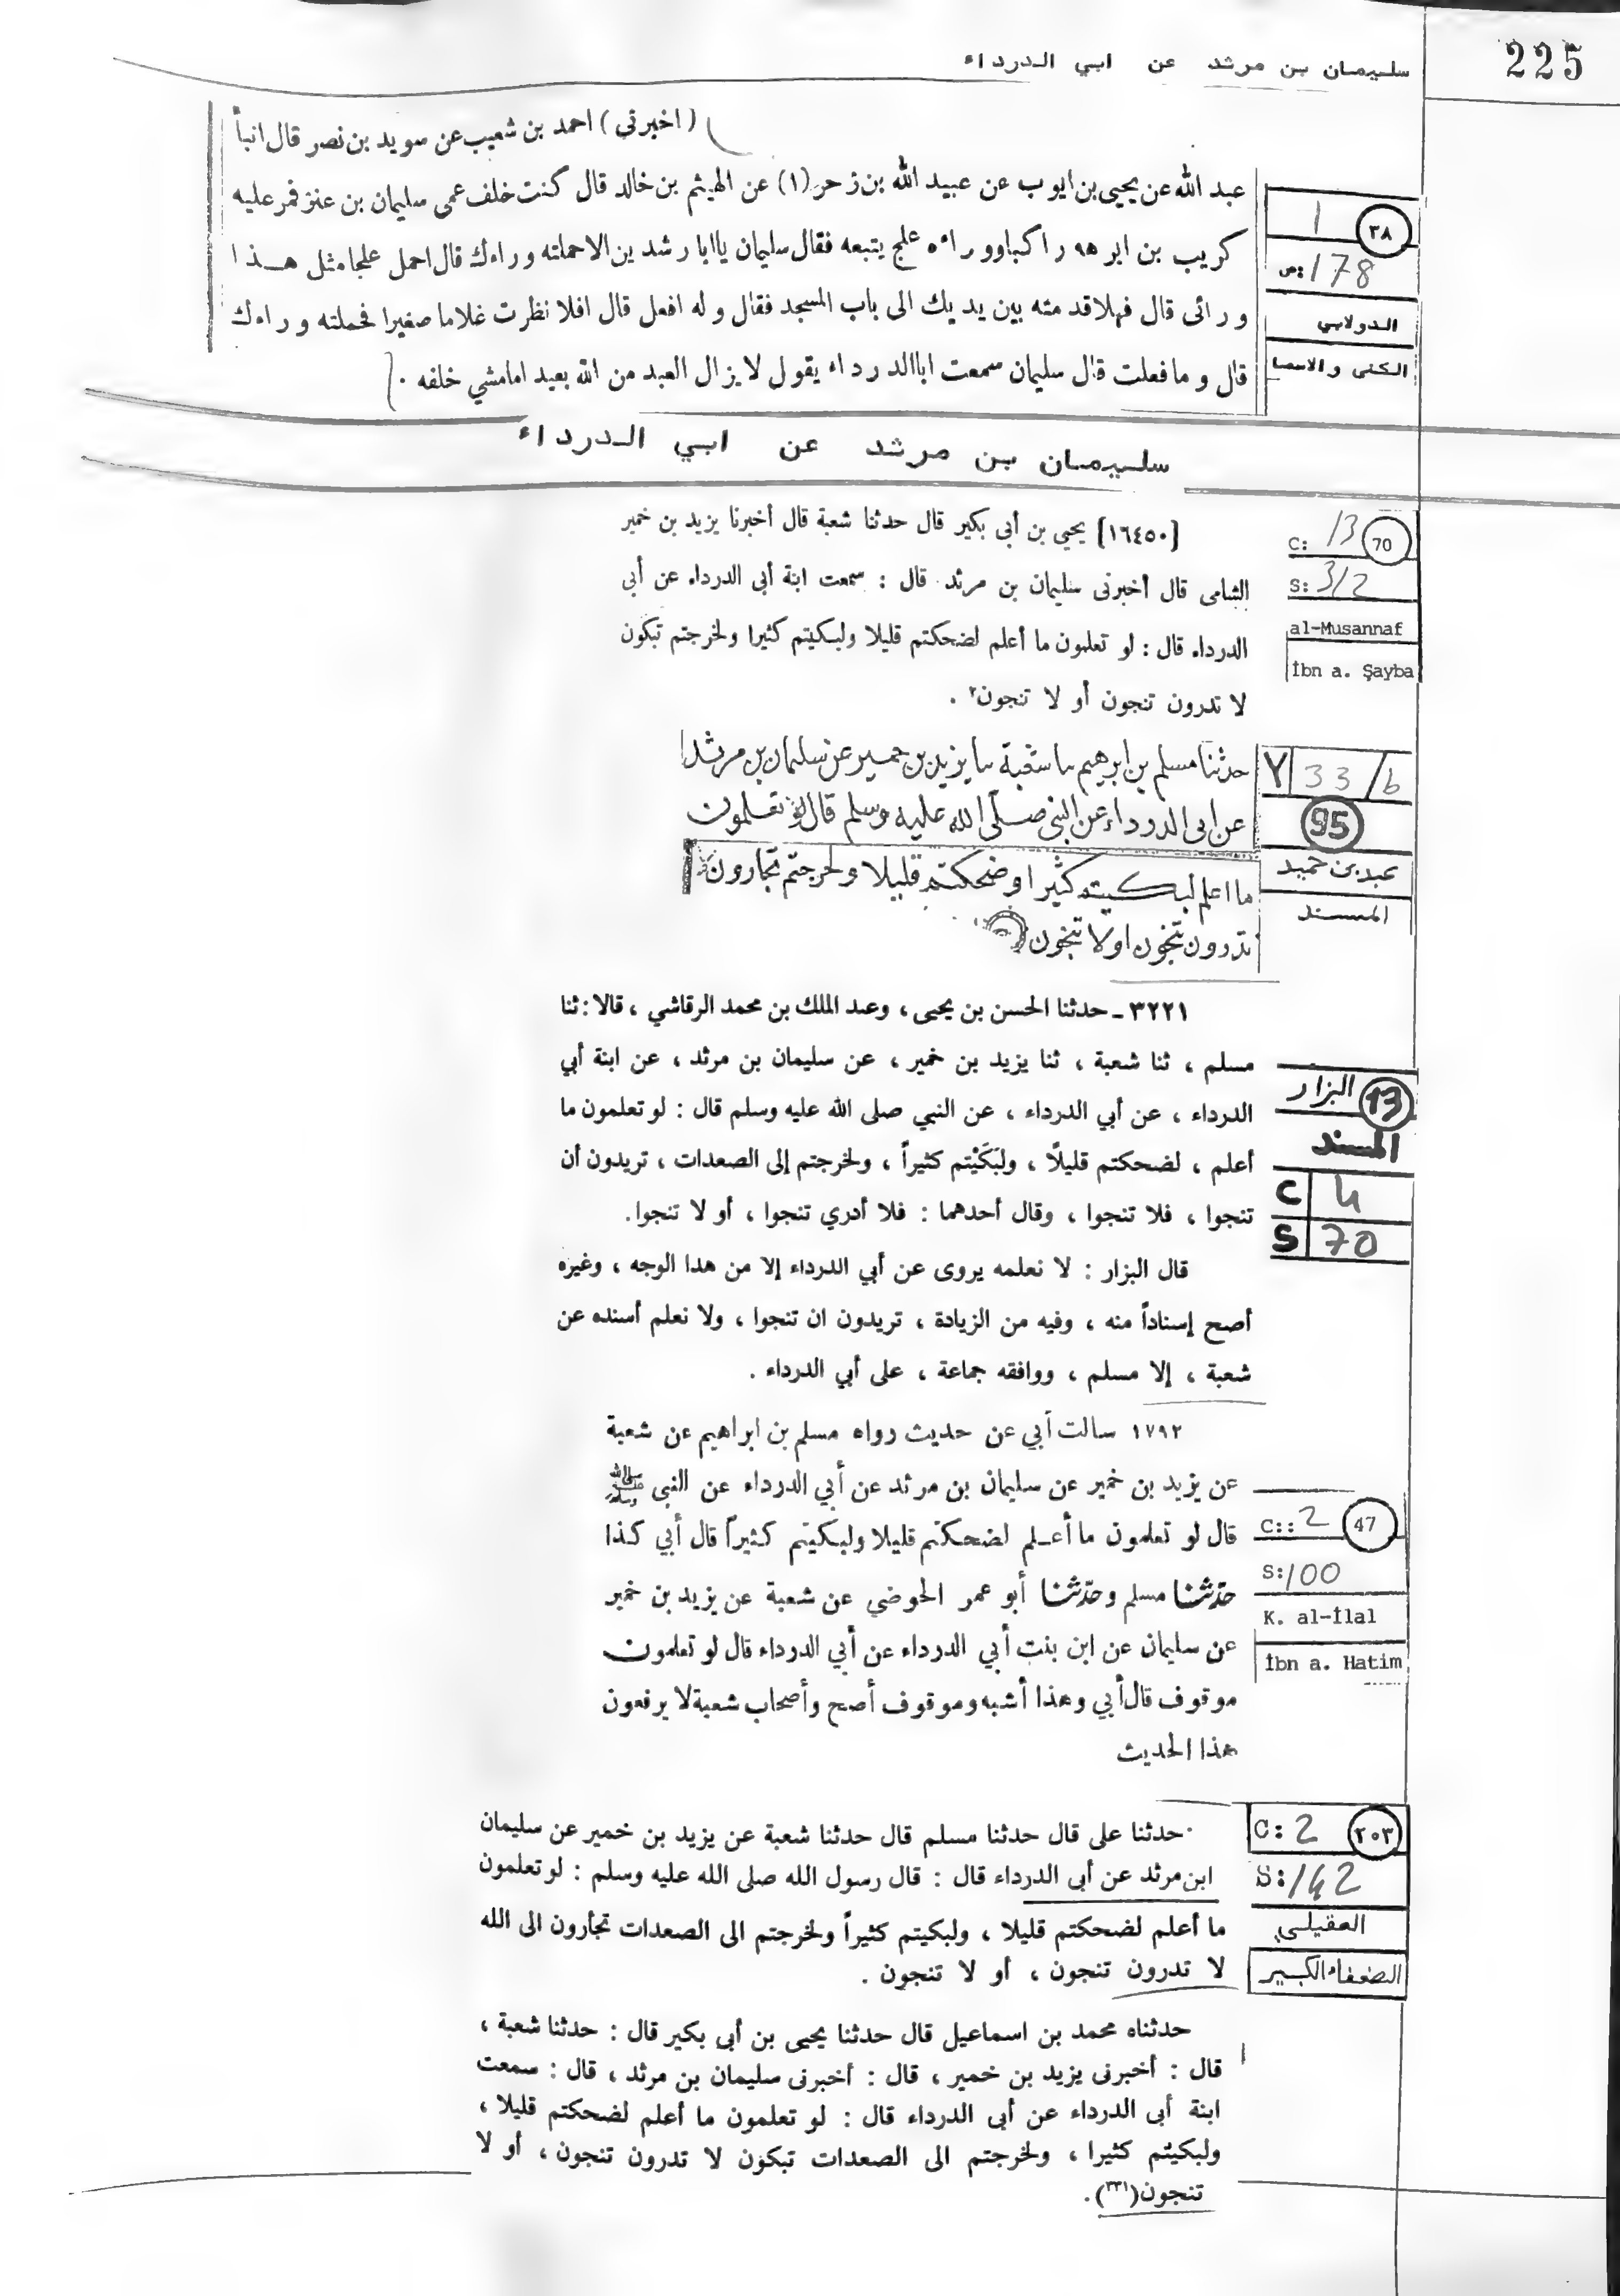 225
سليمان بن مرثد عن ابي الدرداء
(اخبرني) احمد بن شعيب عن سويد بن نصر قال انبأ
عبد الله عن يحيى بن ايوب عن عبيد الله بن زحر (١) عن الهيثم بن خالد قال كنت خلف عمى سليمان بن عنز فمر عليه
كريب بن ابرهه راكبا وو راءه علج يتبعه فقال سليمان يا ابا رشد ين الا حملته وراءك قال احمل علجا مثل هذا
ورائى قال فهلا قد مته بين يديك الى باب المسجد فقال وله افعل قال افلا نظرت غلاما صغيرا فحملته وراءك
قال وما فعلت قال سليمان سمعت ابا الدرداء يقول لا يزال العبد من الله بعيد امامشي خلفه .
٣٨
1
ص: 178
الدولابي
الكنى والاسما
سليمان بن مرثد عن ابي الدرداء
[١٦٤٥٠] يحيى بن أبى بكير قال حدثنا شعبة قال أخبرنا يزيد بن خمير
الشامى قال أخبرنى سليمان بن مرثد قال : سمعت ابنة أبى الدرداء عن أبى
الدرداء قال : لو تعلمون ما أعلم لضحكتم قليلا ولبكيتم كثيرا ولخرجتم تبكون
لا تدرون تنجون أو لا تنجون٢ .
C: 13 70
S: 312
al-Musannaf
İbn a. Şayba
حدثنا مسلم بن ابرهيم سا شعبة سا يزيد بن حمير عن سليمان بن مرثد
عن ابى الدرداء عن النبى صلى الله عليه وسلم قال لو تعلمون
ما اعلم لبكيتم كثيرا وضحكتم قليلا ولخرجتم تجارون
تدرون تنجون او لا تنجون
Y 33/b
95
عبد بن حميد
المسند
٣٢٢١ ـ حدثنا الحسن بن يحيى ، وعبد الملك بن محمد الرقاشي ، قالا : ثنا
مسلم ، ثنا شعبة ، ثنا يزيد بن خمير ، عن سليمان بن مرثد ، عن ابنة أبي
الدرداء ، عن أبي الدرداء ، عن النبي صلى الله عليه وسلم قال : لو تعلمون ما
أعلم ، لضحكتم قليلًا ، ولبَكَيْتم كثيراً ، ولخرجتم إلى الصعدات ، تريدون أن
تنجوا ، فلا تنجوا ، وقال أحدهما : فلا أدري تنجوا ، أو لا تنجوا.
قال البزار : لا نعلمه يروى عن أبي الدرداء إلا من هدا الوجه ، وغيره
أصح إسناداً منه ، وفيه من الزيادة ، تريدون ان تنجوا ، ولا نعلم أسنده عن
شعبة ، إلا مسلم ، ووافقه جماعة ، على أبي الدرداء .
13 البزار
المسند
C 4
S 70
١٧٩٢ سالت أبي عن حديث رواه مسلم بن ابراهيم عن شعبة
عن يزيد بن خمير عن سليمان بن مرثد عن أبي الدرداء عن النبى ﷺ
قال لو تعلمون ما أعلم لضحكتم قليلا ولبكيتم كثيراً قال أبي كذا
حدّثنا مسلم وحدّثنا أبو عمر الحوضي عن شعبة عن يزيد بن خمير
عن سليمان عن ابن بنت أبي الدرداء عن أبي الدرداء قال لو تعلمون
موقوف قال أبي وهذا أشبه وموقوف أصح وأصحاب شعبة لا يرفعون
هذا الحديث
C:: 2 47
S: 100
K. al-İlal
İbn a. Hatim
حدثنا على قال حدثنا مسلم قال حدثنا شعبة عن يزيد بن خمير عن سليمان
ابن مرثد عن أبى الدرداء قال : قال رسول الله صلى الله عليه وسلم : لو تعلمون
ما أعلم لضحكتم قليلا ، ولبكيتم كثيراً ولخرجتم الى الصعدات تجأرون الى الله
لا تدرون تنجون ، أو لا تنجون .
C: 2 ٢٠٣
S: 142
العقيلي
الضعفاء الكبير
حدثناه محمد بن اسماعيل قال حدثنا يحيى بن أبى بكير قال : حدثنا شعبة ،
قال : أخبرنى يزيد بن خمير ، قال : أخبرنى سليمان بن مرثد ، قال : سمعت
ابنة أبى الدرداء عن أبى الدرداء قال : لو تعلمون ما أعلم لضحكتم قليلا ،
ولبكيتم كثيرا ، ولخرجتم الى الصعدات تبكون لا تدرون تنجون ، أو لا
تنجون(٣٣١) .